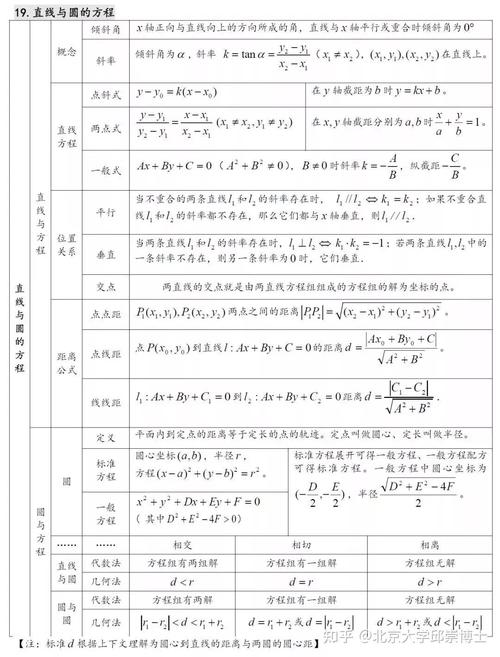 19.直线与圆的方程
直线与圆的方程
直线与方程
概念
倾斜角
x轴正向与直线向上的方向所成的角，直线与x轴平行或重合时倾斜角为0°
斜率
倾斜角为α，斜率 k=tanα=(y₂-y₁)/(x₂-x₁) (x₁≠x₂), (x₁,y₁),(x₂,y₂)在直线上。
直线方程
点斜式
y-y₀=k(x-x₀)
在y轴截距为b时y=kx+b。
两点式
(y-y₁)/(y₂-y₁)=(x-x₁)/(x₂-x₁) (x₁≠x₂,y₁≠y₂)
在x,y轴截距分别为a,b时x/a+y/b=1。
一般式
Ax+By+C=0 (A²+B²≠0)，B≠0时斜率k=-A/B，纵截距-C/B。
位置关系
平行
当不重合的两条直线l₁和l₂的斜率存在时，l₁//l₂⇔k₁=k₂；如果不重合直
线l₁和l₂的斜率都不存在，那么它们都与x轴垂直，则l₁//l₂.
垂直
当两条直线l₁和l₂的斜率存在时，l₁⊥l₂⇔k₁·k₂=-1；若两条直线l₁,l₂中的
一条斜率不存在，则另一条斜率为0时，它们垂直.
交点
两直线的交点就是由两直线方程组组成的方程组的解为坐标的点。
距离公式
点点距
P₁(x₁,y₁),P₂(x₂,y₂)两点之间的距离|P₁P₂|=√((x₂-x₁)²+(y₂-y₁)²)。
点线距
点P(x₀,y₀)到直线l:Ax+By+C=0的距离d=|Ax₀+By₀+C|/√(A²+B²)。
线线距
l₁:Ax+By+C₁=0到l₂:Ax+By+C₂=0距离d=|C₁-C₂|/√(A²+B²).
圆与方程
圆
定义
平面内到定点的距离等于定长的点的轨迹。定点叫做圆心、定长叫做半径。
标准方程
圆心坐标(a,b)，半径r，
方程(x-a)²+(y-b)²=r²。
标准方程展开可得一般方程、一般方程配方
可得标准方程。一般方程中圆心坐标为
(-D/2,-E/2)，半径√(D²+E²-4F)/2。
一般方程
x²+y²+Dx+Ey+F=0
(其中D²+E²-4F>0)
…… …… 相交 相切 相离
直线与圆
代数法 方程组有两组解 方程组有一组解 方程组无解
几何法 d<r d=r d>r
圆与圆
代数法 方程组有两解 方程组有一组解 方程组无解
几何法 |r₁-r₂|<d<r₁+r₂ d=r₁+r₂或d=|r₁-r₂| d>r₁+r₂或d<|r₁-r₂|
【注：标准d根据上下文理解为圆心到直线的距离与两圆的圆心距】
知乎 @北京大学邱崇博士